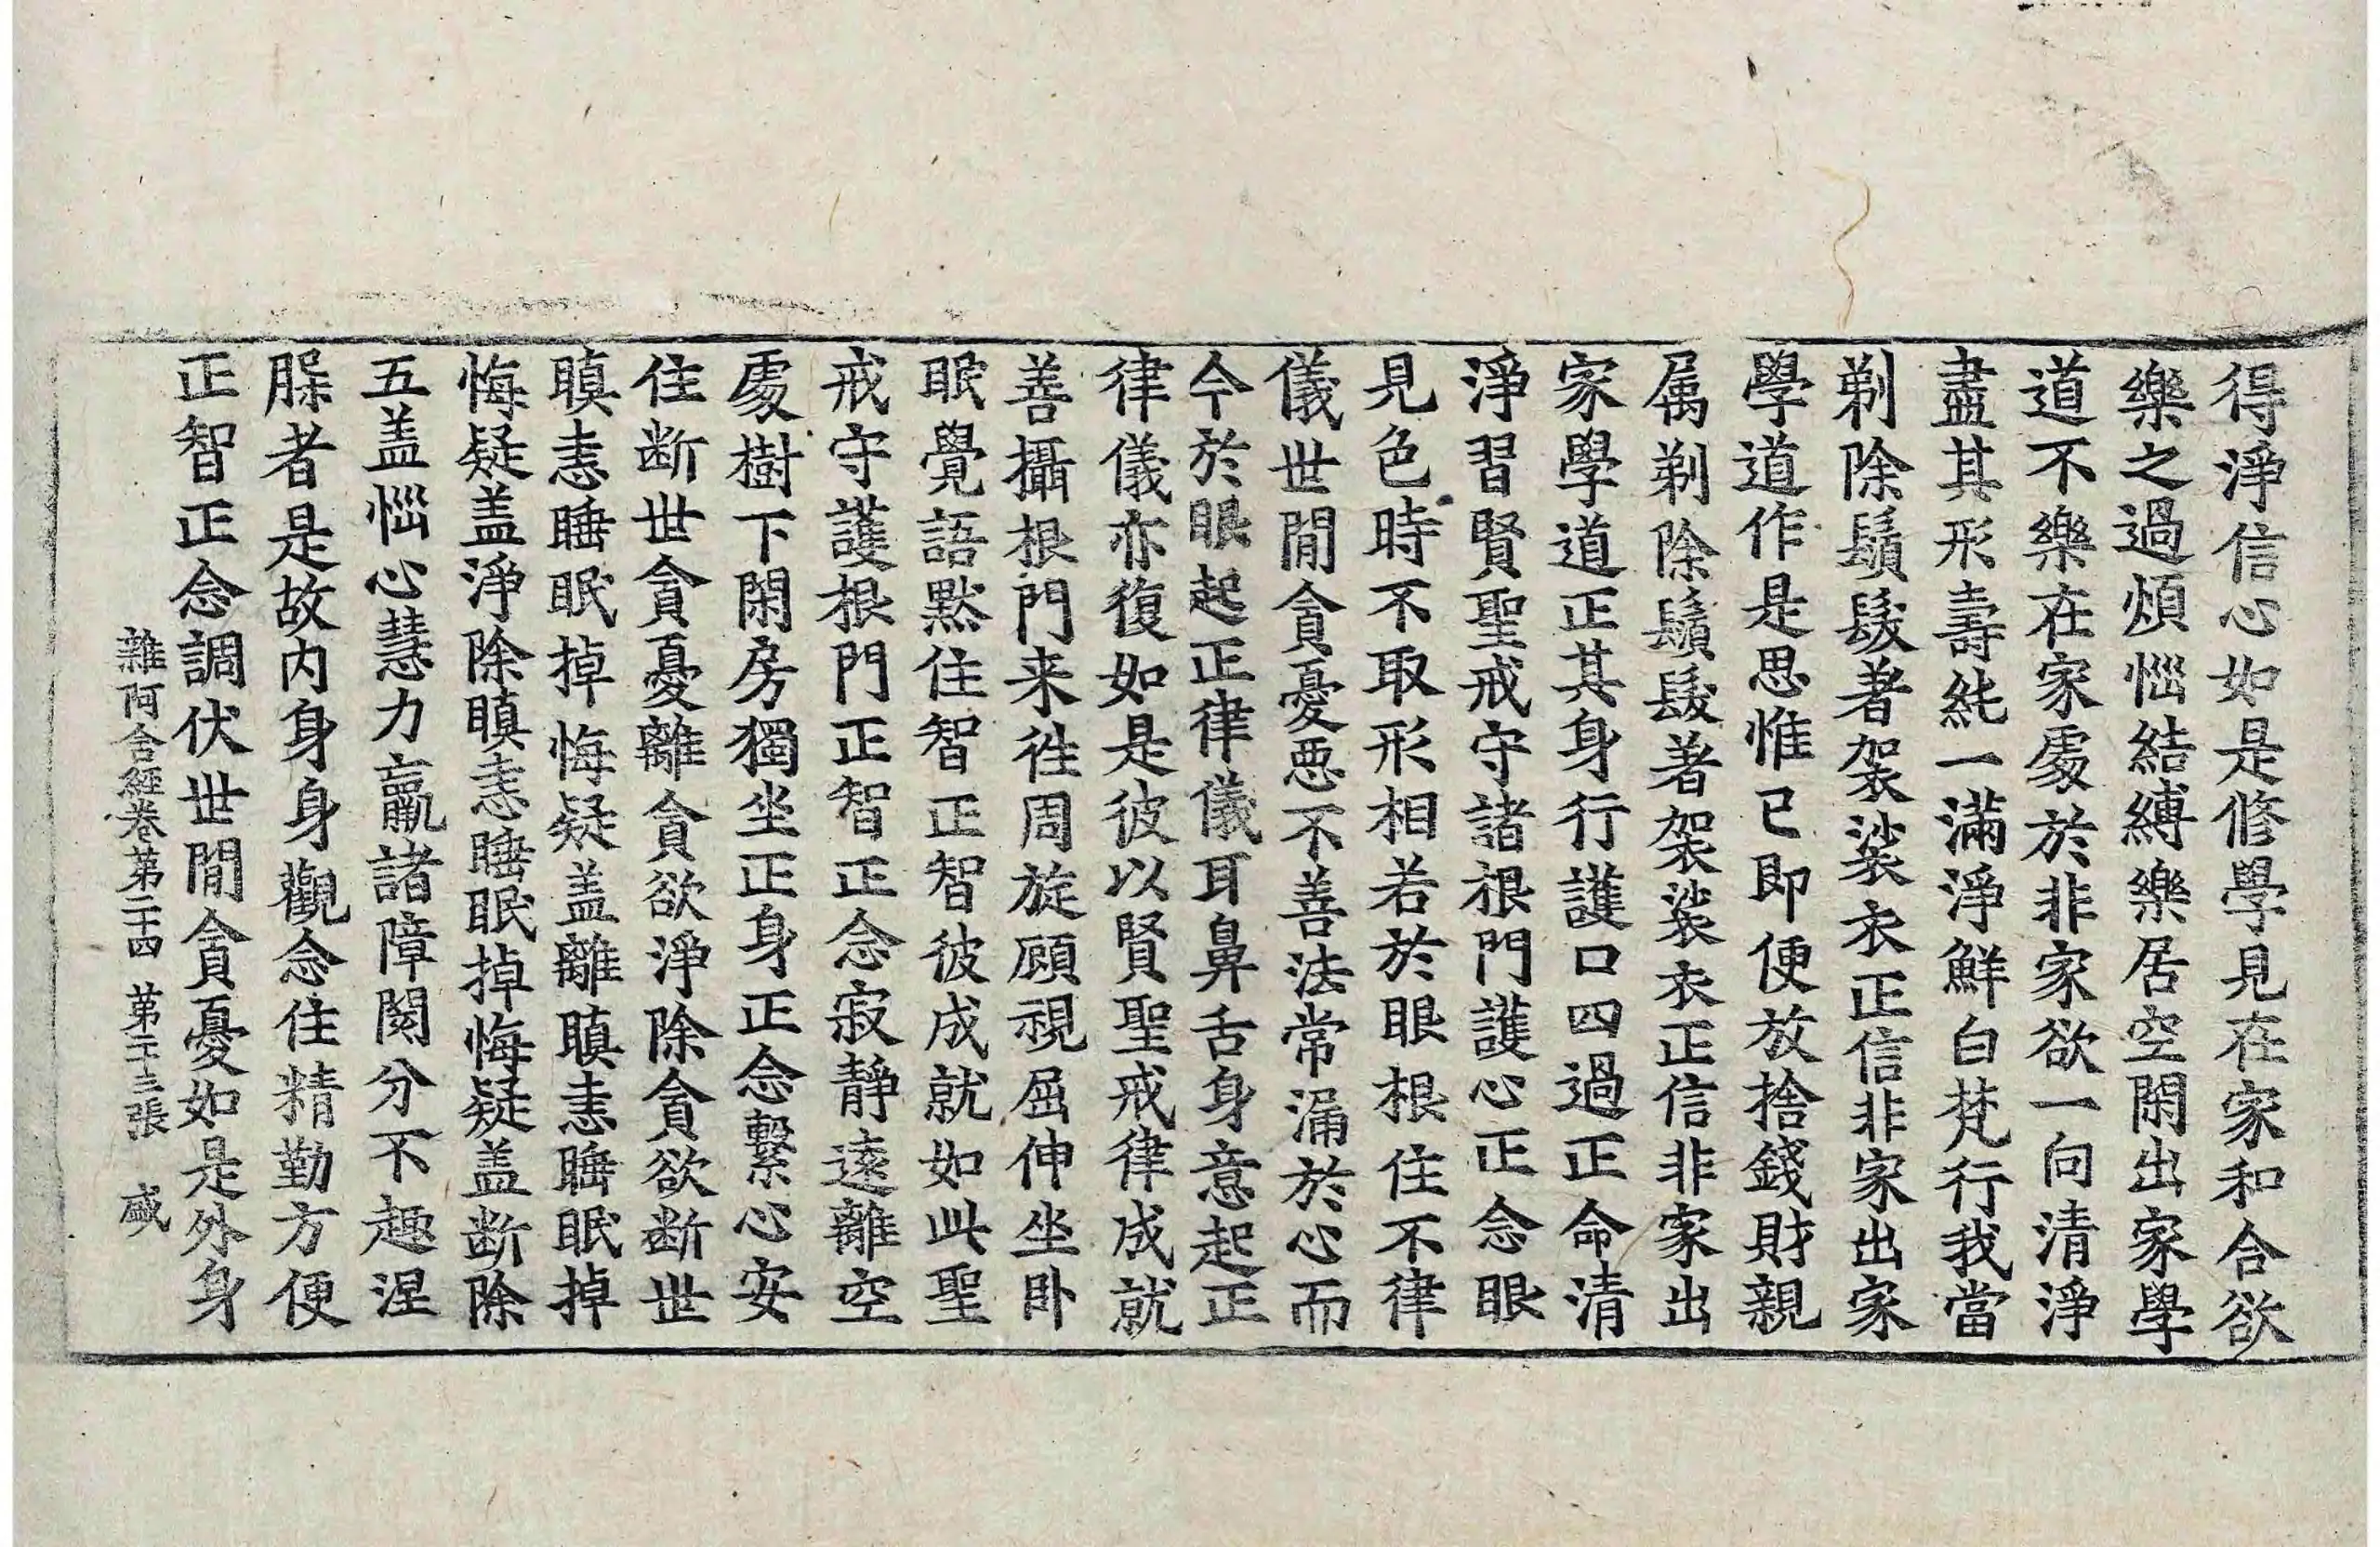 得淨信心如是修學見在家和合欲
樂之過煩惱結縛樂居空閑出家學
道不樂在家處於非家欲一向清淨
盡其形壽純一滿淨鮮白梵行我當
剃除鬚髮著袈裟衣正信非家出家
學道作是思惟已即便放捨錢財親
属剃除鬚髮著袈裟衣正信非家出
家學道正其身行護口四過正命清
淨習賢聖戒守諸根門護心正念眼
見色時不取形相若於眼根住不律
儀世閒貪憂惡不善法常漏於心而
今於眼起正律儀耳鼻舌身意起正
律儀亦復如是彼以賢聖戒律成就
善攝根門来往周旋顧視屈伸坐卧
眠覺語默住智正智彼成就如此聖
戒守護根門正智正念寂靜遠離空
處樹下閑房獨坐正身正念繫心安
住断世貪憂離貪欲淨除貪欲断世
瞋恚睡眠掉悔疑盖離瞋恚睡眠掉
悔疑盖淨除瞋恚睡眠掉悔疑盖断除
五盖惱心慧力羸諸障閡分不趣涅
槃者是故内身身觀念住精勤方便
正智正念調伏世閒貪憂如是外身
雜阿含經卷第二十四 第二十三張 盛